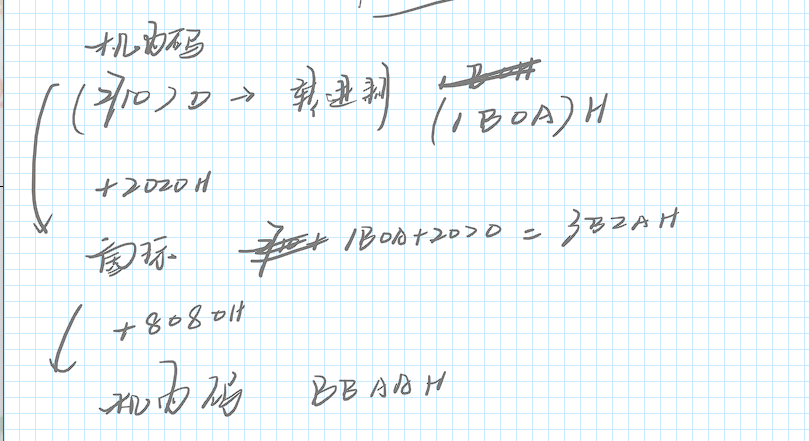 机内码
(2710)D → 转进制 (1B0A)H
+2020H
国标 1B0A+2020 = 3B2AH
+8080H
机内码 BBAAH